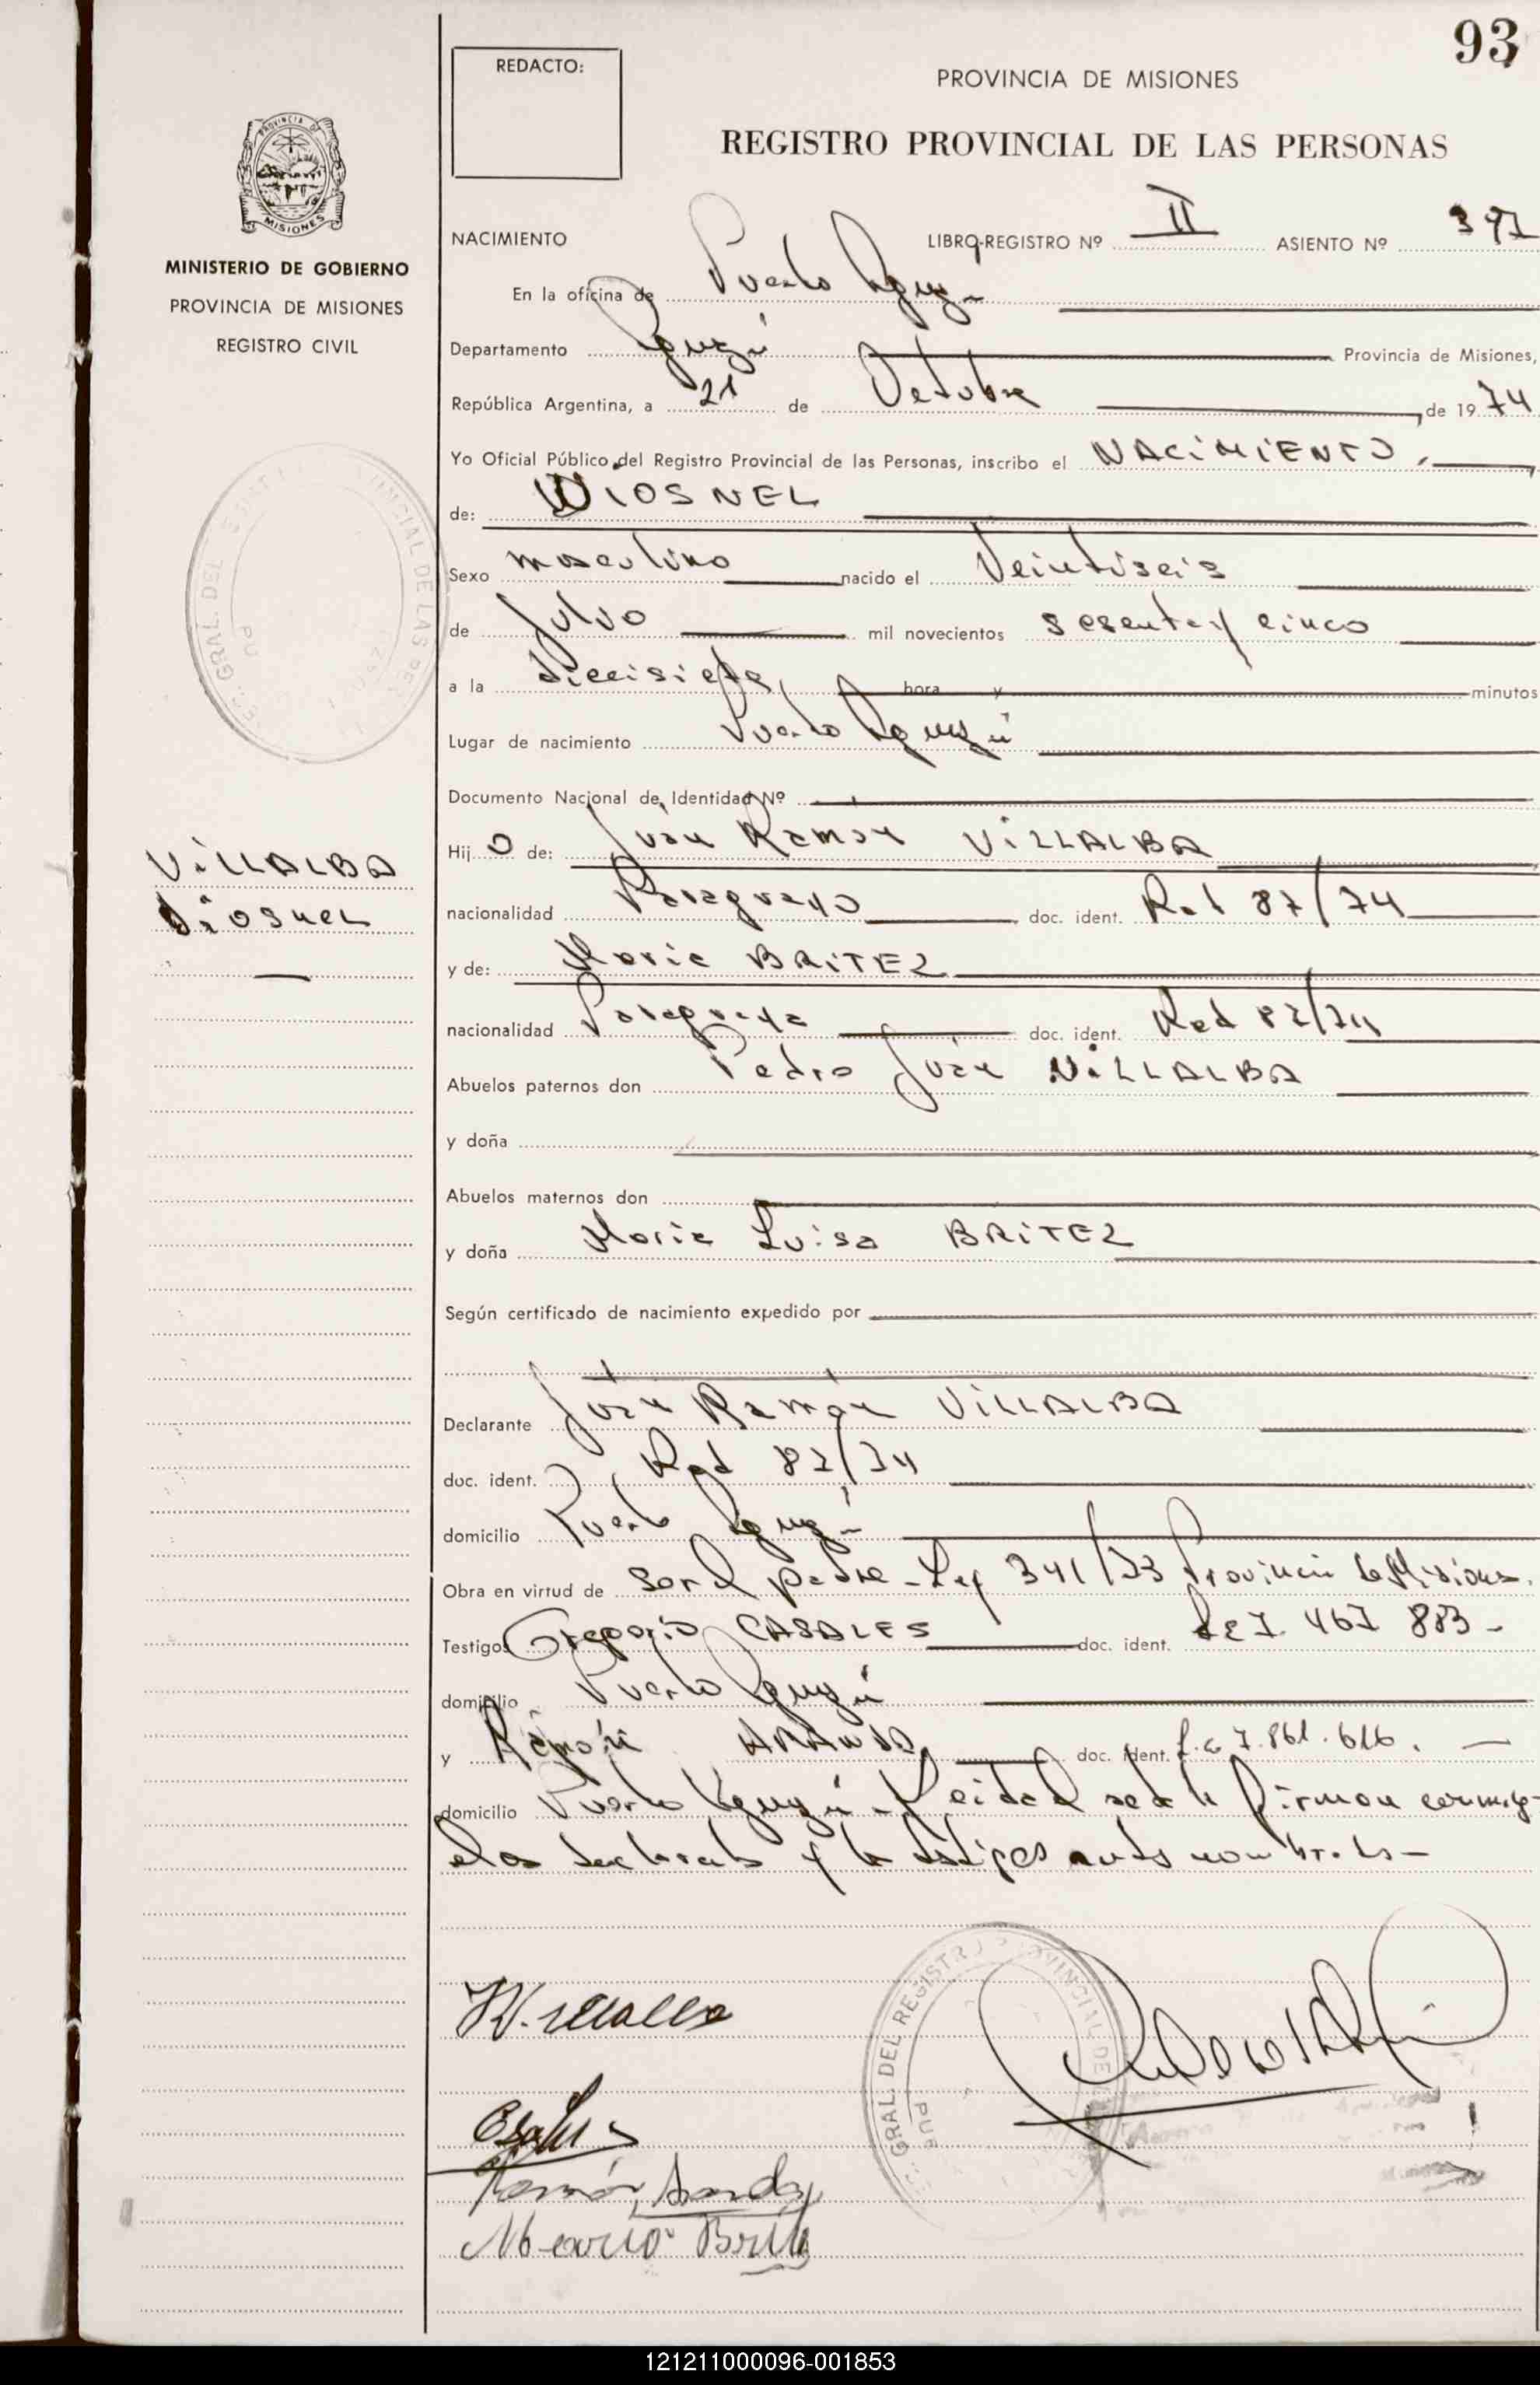 93
REDACTO:
PROVINCIA DE MISIONES
REGISTRO PROVINCIAL DE LAS PERSONAS
PROVINCIA DE
MISIONES
MINISTERIO DE GOBIERNO
PROVINCIA DE MISIONES
REGISTRO CIVIL
NACIMIENTO LIBRO-REGISTRO Nº II ASIENTO Nº 391
En la oficina de Puerto Iguazú
Departamento Iguazú Provincia de Misiones,
República Argentina, a 21 de Octubre de 1974
Yo Oficial Público del Registro Provincial de las Personas, inscribo el NACIMIENTO.
de: DIOSNEL
Sexo masculino nacido el Veintiseis
de Julio mil novecientos sesenta y cinco
a la diecisiete hora y minutos
Lugar de nacimiento Puerto Iguazú
Documento Nacional de Identidad Nº
Hijo de: Juan Ramón VILLALBA
VILLALBA
Diosnel
nacionalidad Paraguayo doc. ident. Rad 87/74
y de: Maria BRITEZ
nacionalidad Paraguaya doc. ident. Rad 82/74
Abuelos paternos don Pedro Juan VILLALBA
y doña
Abuelos maternos don
y doña Maria Luisa BRITEZ
Según certificado de nacimiento expedido por
Declarante Juan Ramón VILLALBA
doc. ident. Rad 87/74
domicilio Puerto Iguazú
Obra en virtud de ser el padre - Ley 341/73 Provincia de Misiones.
Testigos Gregorio CASALES doc. ident. 467 883 -
domicilio Puerto Iguazú
y Ramón ARANDA doc. ident. 7.861.616.
domicilio Puerto Iguazú - Leida el acta la firman conmigo
el declarante y los testigos antes nombrados -
GRAL. DEL REGISTRO PROVINCIAL DE
Ramón Aranda
Maria Britez
121211000096-001853